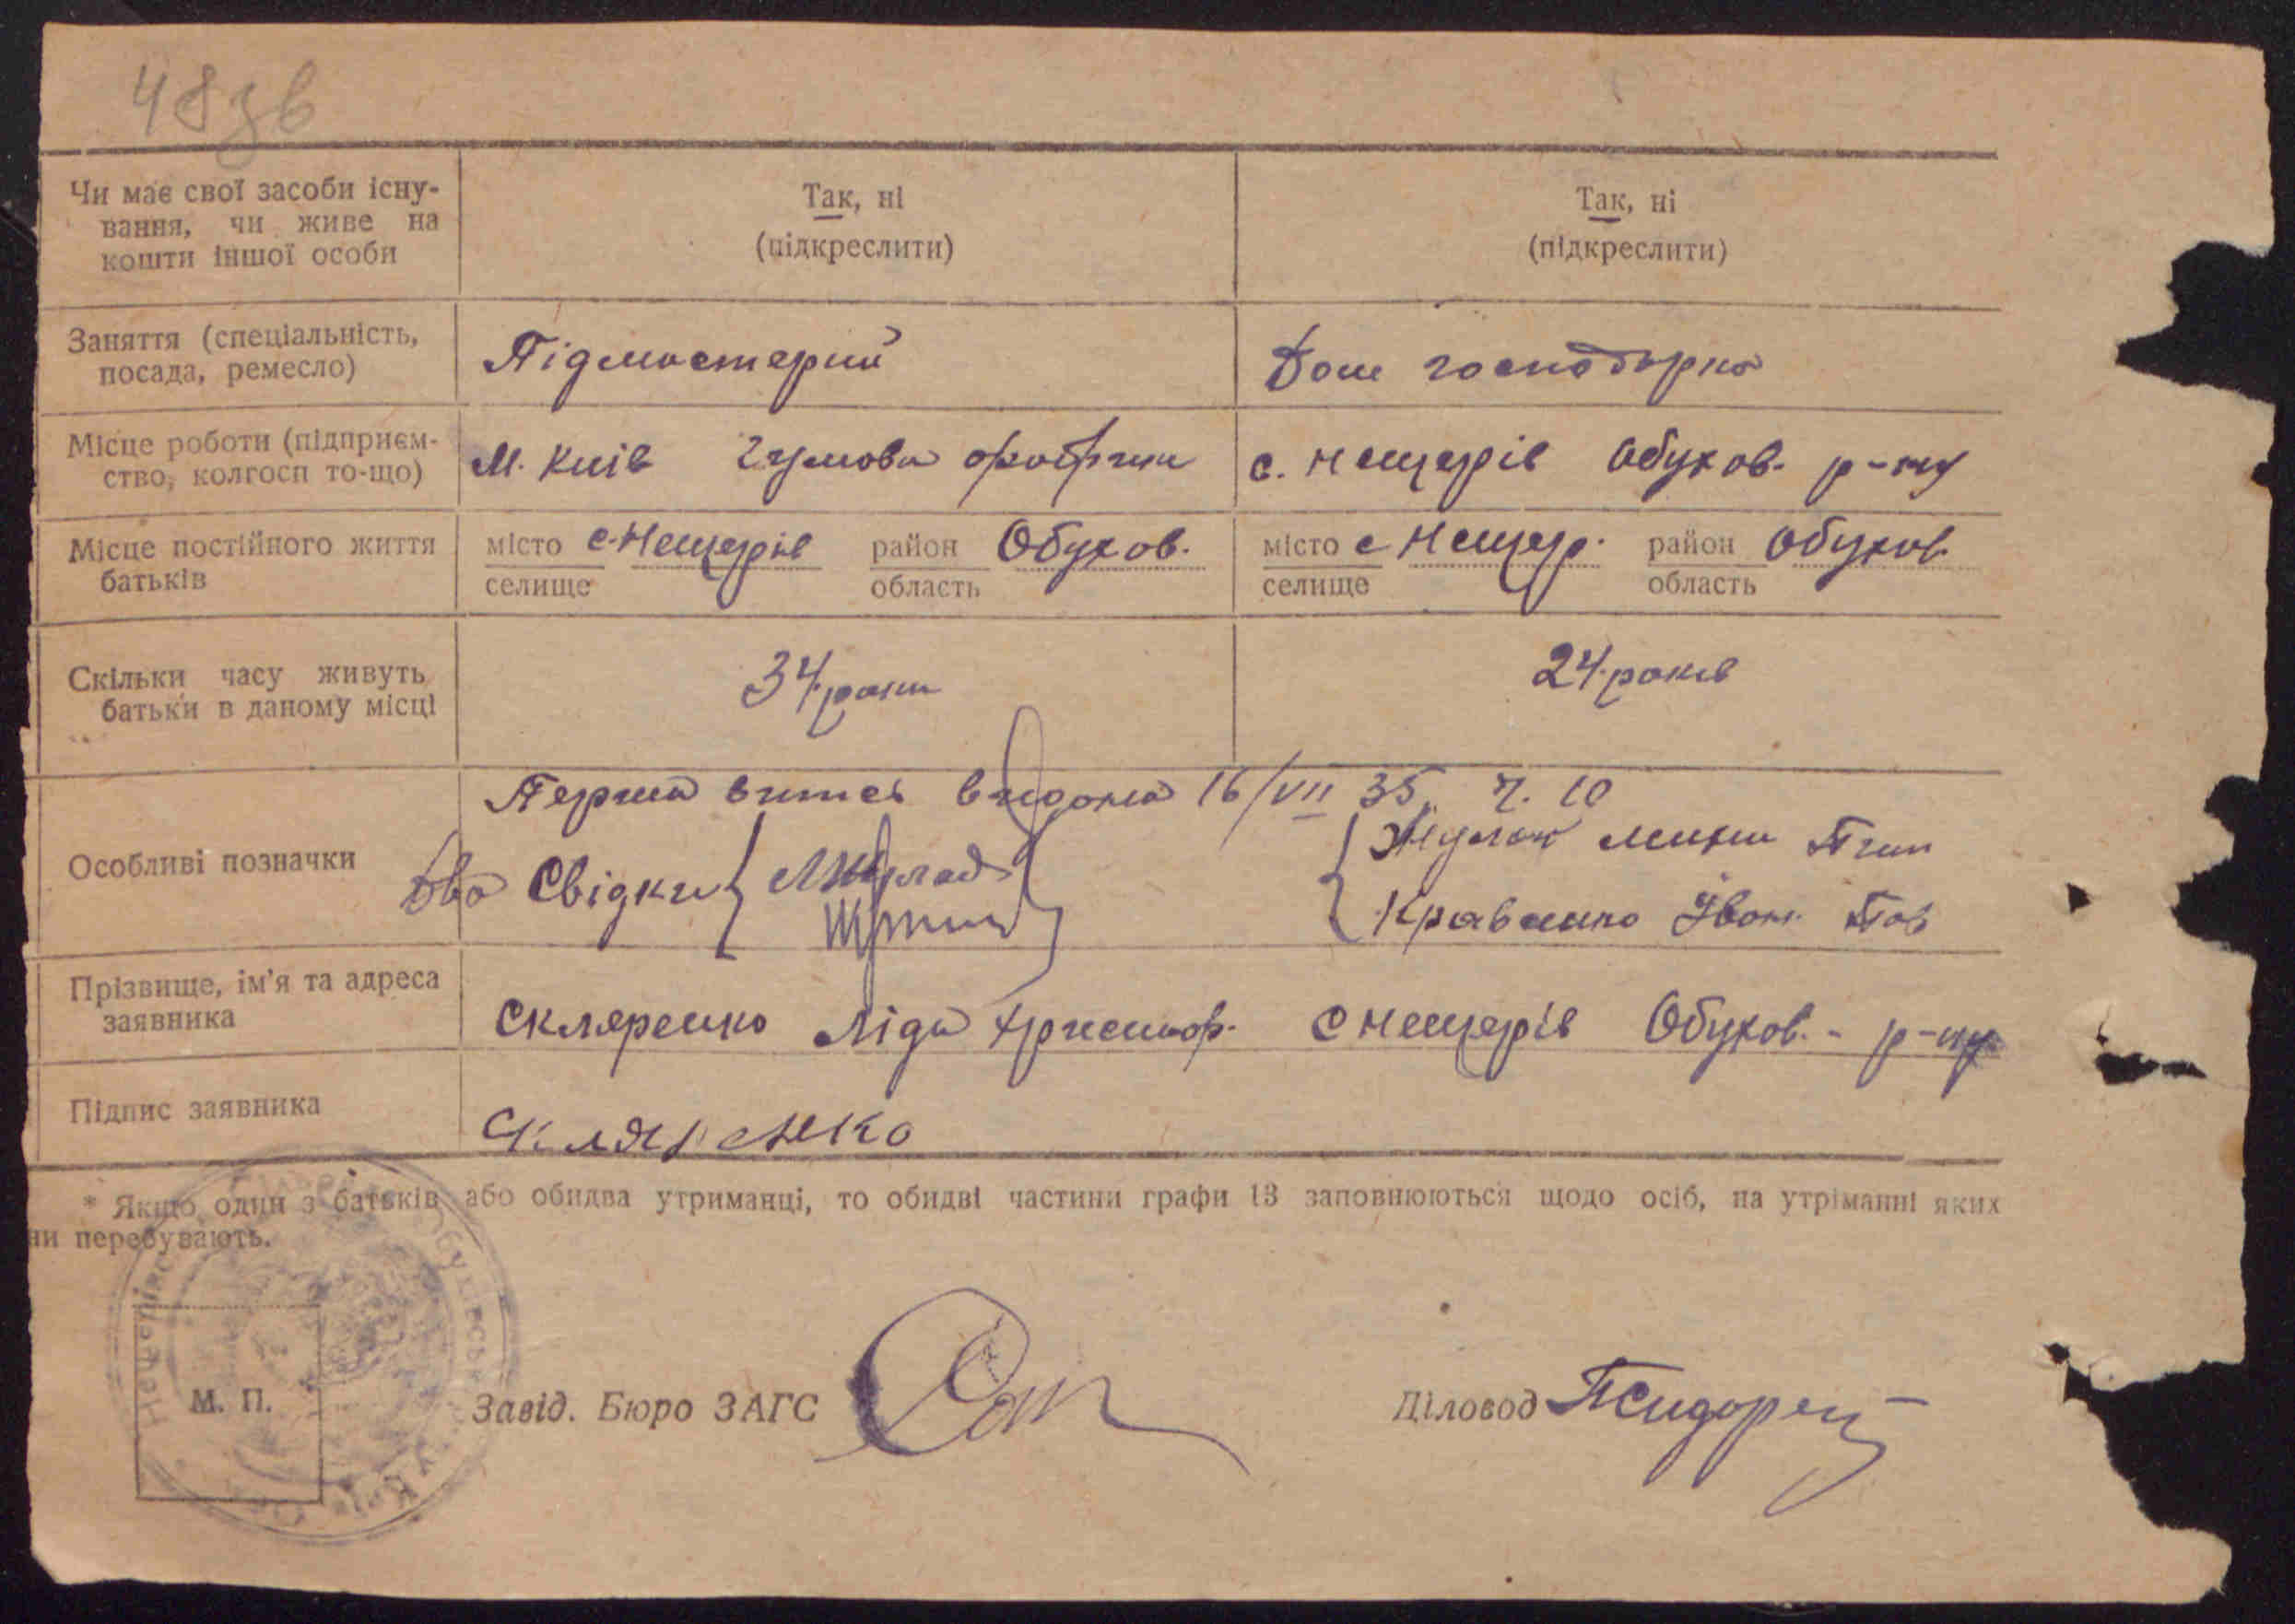 48зв
Чи має свої засоби існу-
вання, чи живе на
кошти іншої особи
Так, ні
(підкреслити)
Так, ні
(підкреслити)
Заняття (спеціальність,
посада, ремесло)
Підмастерий
Дом господарка
Місце роботи (підприєм-
ство, колгосп то-що)
М. Київ гумова фабрика
с. Нещерів Обухов. р-ну
Місце постійного життя
батьків
місто с. Нещерів район Обухов.
селище область
місто с Нещер. район Обухов.
селище область
Скільки часу живуть
батьки в даному місці
34 роки
24 років
Особливі позначки
Перша витяг видона 16/VII 35 ч. 10
Два Свідки
Кравченко Іван Пав
Прізвище, ім'я та адреса
заявника
Скляренко Ліда Христоф. с Нещерів Обухов. - р-ну
Підпис заявника
Скляренко
* Якщо один з батьків або обидва утриманці, то обидві частини графи 13 заповнюються щодо осіб, на утріманні яких
ни перебувають.
М. П.
Завід. Бюро ЗАГС
Діловод ПСидорец